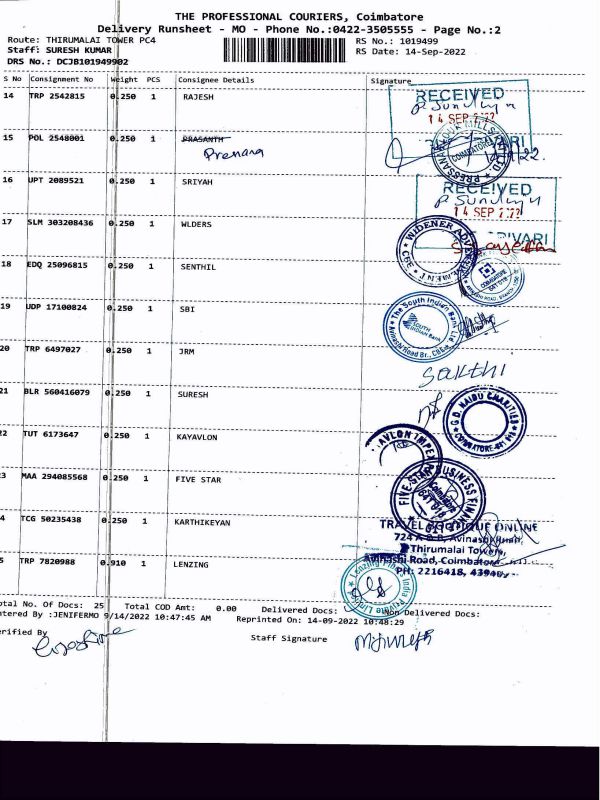 THE PROFESSIONAL COURIERS, Coimbatore
Delivery Runsheet - MO - Phone No.:0422-3505555 - Page No.:2
Route: THIRUMALAI TOWER PC4 RS No.: 1019499
Staff: SURESH KUMAR RS Date: 14-Sep-2022
DRS No.: DCJB101949902
S No Consignment No Weight PCS Consignee Details Signature
14 TRP 2542815 0.250 1 RAJESH
RECEIVED
14 SEP
15 POL 2548001 0.250 1 PRASANTH
Prerana
COIMBATORE
16 UPT 2089521 0.250 1 SRIYAH
RECEIVED
14 SEP
17 SLM 303208436 0.250 1 WLDERS
WIDENER
CBE
18 EDQ 25096815 0.250 1 SENTHIL
COIMBATORE
19 UDP 17100824 0.250 1 SBI
The South Indian Bank Ltd.
SOUTH INDIAN Bank
Avinashi Road Br., CBE
20 TRP 6497027 0.250 1 JRM
Sakthi
21 BLR 560416079 0.250 1 SURESH
G.D. NAIDU CHARITIES
COIMBATORE
22 TUT 6173647 0.250 1 KAYAVLON
AVLON IMPEX
23 MAA 294085568 0.250 1 FIVE STAR
FIVE STAR BUSINESS FINAN
Coimbatore
24 TCG 50235438 0.250 1 KARTHIKEYAN
TRAVEL BOUTIQUE ONLINE
724 A & B, Avinashi Road,
Thirumalai Towers,
Avinashi Road, Coimbatore
PH: 2216418,
25 TRP 7820988 0.910 1 LENZING
Lenzing Fibers India Private Limited
Total No. Of Docs: 25 Total COD Amt: 0.00 Delivered Docs: Non Delivered Docs:
Entered By :JENIFERMO 9/14/2022 10:47:45 AM Reprinted On: 14-09-2022 10:48:29
Verified By Staff Signature